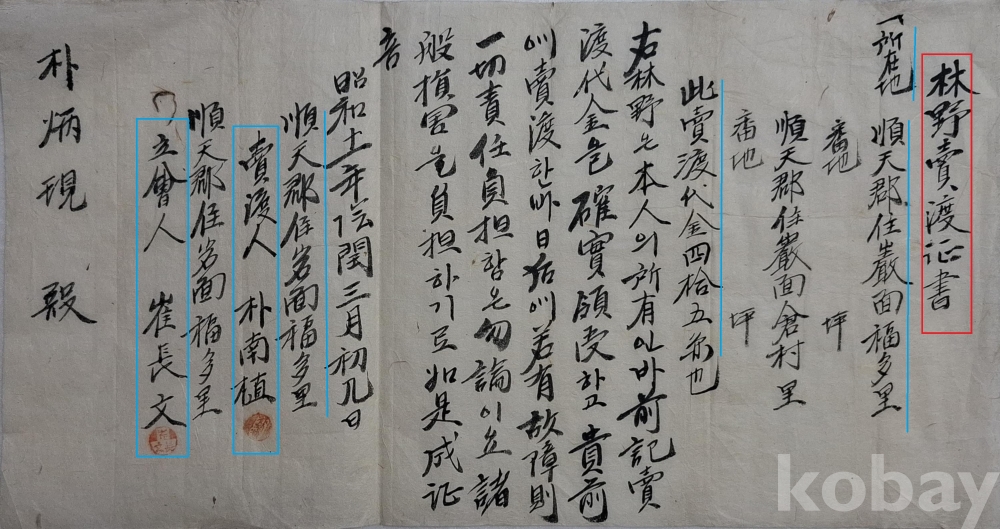 林野賣渡证書
一所在地
順天郡住巖面福多里
番地 坪
順天郡住巖面倉村里
番地 坪
此賣渡代金四拾五두也
右林野는本人의所有인바前記賣
渡代金을確實領受하고貴前
에賣渡한바日后에若有故障則
一切責任負担함은勿論이요諸
般損害을負担하기로如是成证
音
昭和十一年陰閏三月初九日
順天郡住岩面福多里
賣渡人 朴南植
順天郡住岩面福多里
立會人 崔長文
朴炳現 殿
kobay